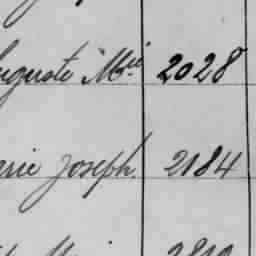 Auguste Mie 2028
arie Joseph. 2184